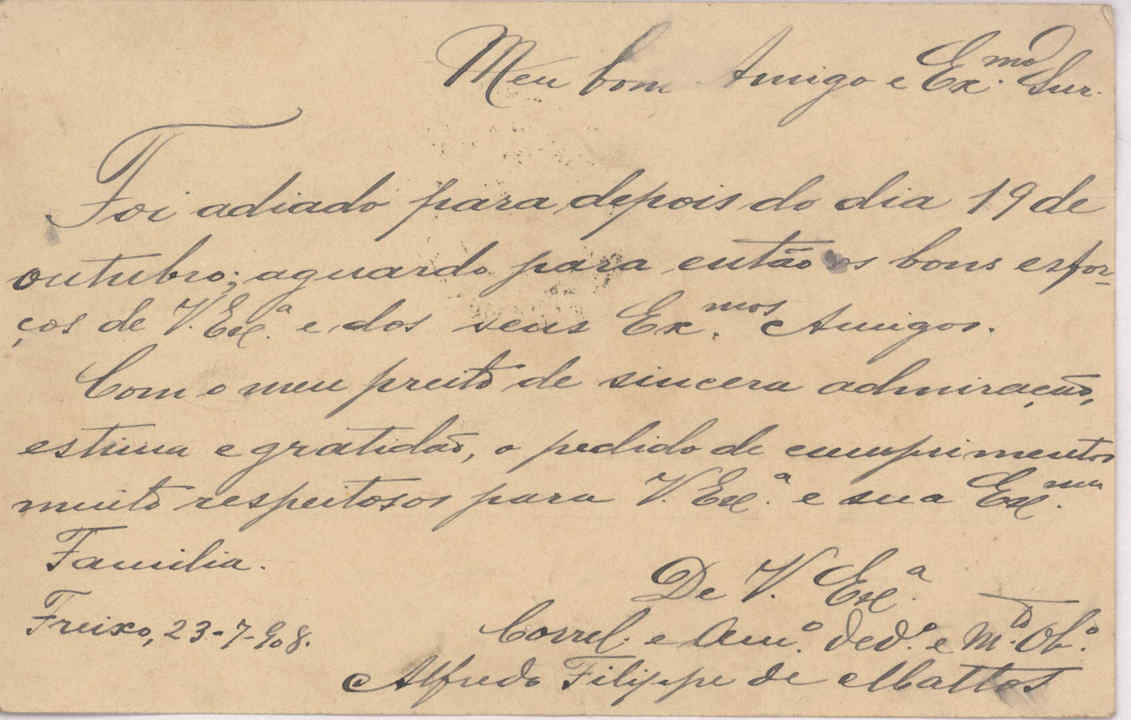 Meu bom Amigo e Ex.mo Snr.
Foi adiado para depois do dia 19 de
outubro; aguardo para então os bons esfor-
ços de V. Ex.a e dos seus Ex.mos Amigos.
Com o meu preito de sincera admiração,
estima e gratidão, o pedido de cumprimentos
muito respeitosos para V. Ex.a e sua Ex.ma
Familia.
De V. Ex.a
Freixo, 23-7-908.
Correl. e Am.o ded.o e M.to Ob.o
Alfredo Filippe de Mattos